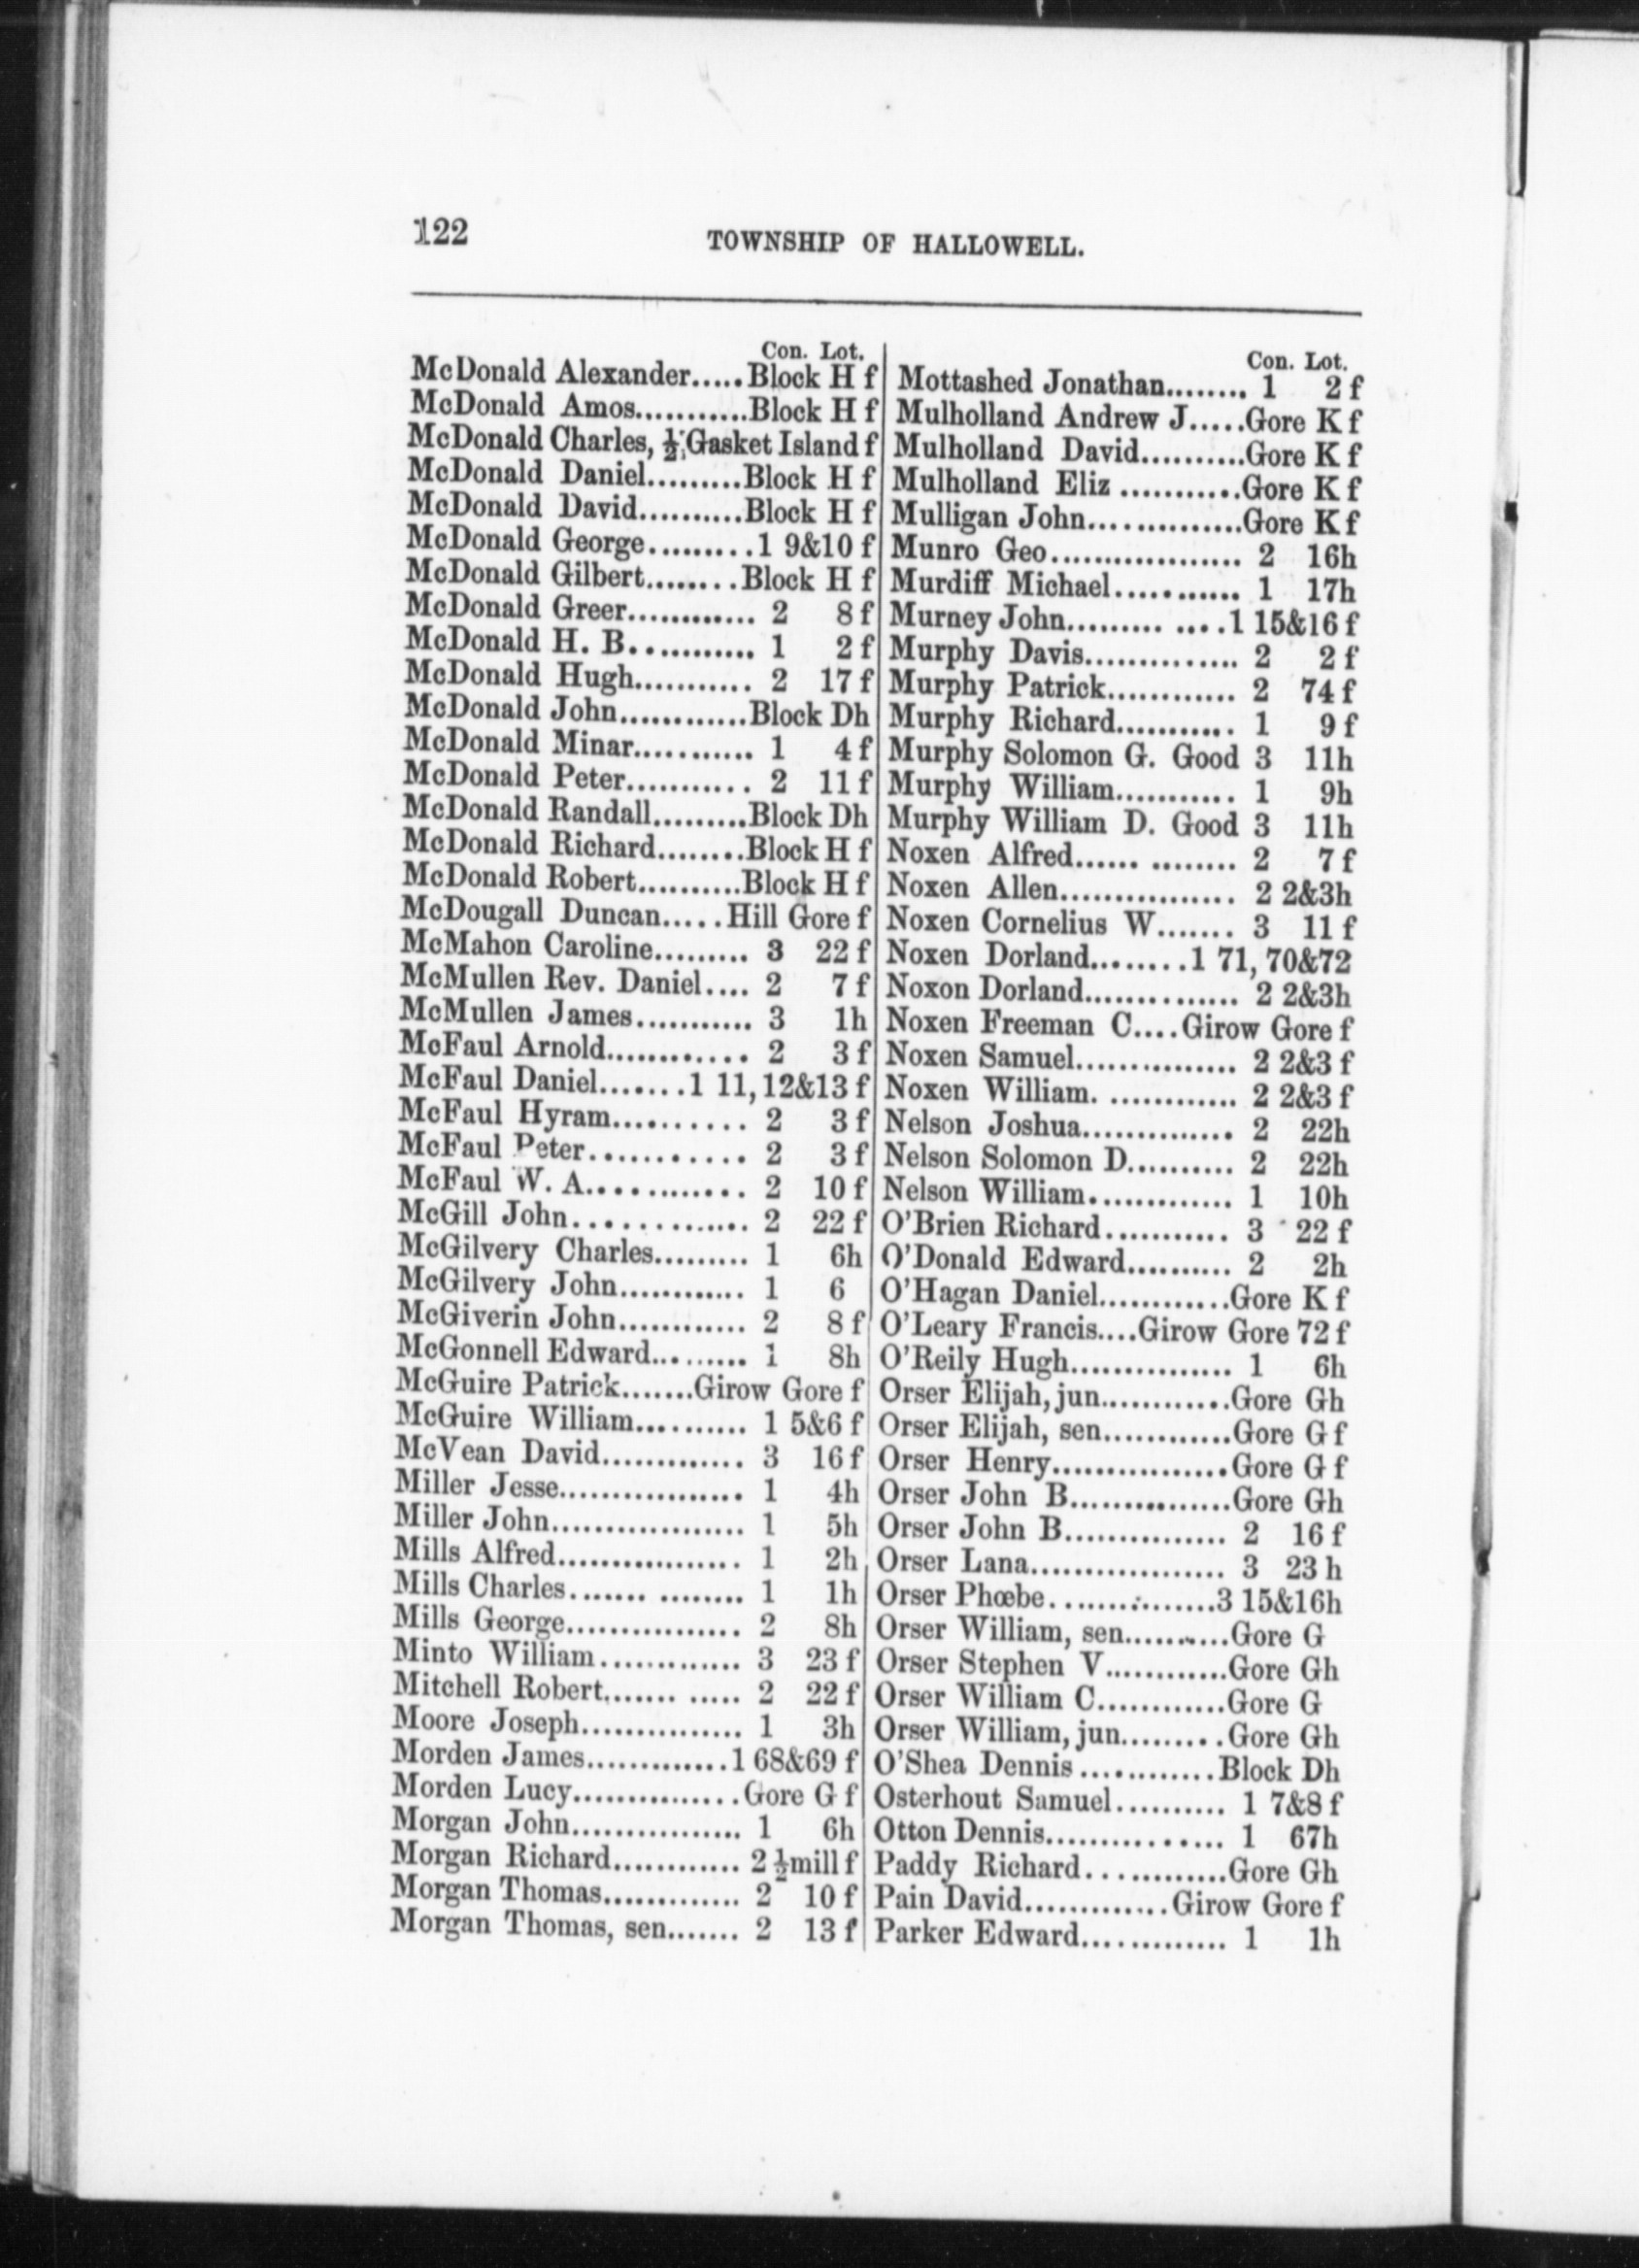 122
TOWNSHIP OF HALLOWELL.
Con. Lot.
McDonald Alexander.....Block H f
McDonald Amos...........Block H f
McDonald Charles, ½ Gasket Island f
McDonald Daniel.........Block H f
McDonald David..........Block H f
McDonald George.........1 9&10 f
McDonald Gilbert........Block H f
McDonald Greer............ 2 8 f
McDonald H. B............ 1 2 f
McDonald Hugh........... 2 17 f
McDonald John............Block Dh
McDonald Minar........... 1 4 f
McDonald Peter........... 2 11 f
McDonald Randall.........Block Dh
McDonald Richard........Block H f
McDonald Robert..........Block H f
McDougall Duncan.....Hill Gore f
McMahon Caroline......... 3 22 f
McMullen Rev. Daniel.... 2 7 f
McMullen James........... 3 1h
McFaul Arnold............ 2 3 f
McFaul Daniel.......1 11, 12&13 f
McFaul Hyram.......... 2 3 f
McFaul Peter........... 2 3 f
McFaul W. A............. 2 10 f
McGill John.............. 2 22 f
McGilvery Charles......... 1 6h
McGilvery John............ 1 6
McGiverin John............ 2 8 f
McGonnell Edward......... 1 8h
McGuire Patrick.......Girow Gore f
McGuire William........... 1 5&6 f
McVean David............. 3 16 f
Miller Jesse................. 1 4h
Miller John................... 1 5h
Mills Alfred................. 1 2h
Mills Charles....... ........ 1 1h
Mills George................ 2 8h
Minto William............. 3 23 f
Mitchell Robert....... ..... 2 22 f
Moore Joseph............... 1 3h
Morden James.............1 68&69 f
Morden Lucy...............Gore G f
Morgan John................ 1 6h
Morgan Richard............ 2 ½mill f
Morgan Thomas............. 2 10 f
Morgan Thomas, sen....... 2 13 f
Con. Lot.
Mottashed Jonathan........ 1 2 f
Mulholland Andrew J.....Gore K f
Mulholland David..........Gore K f
Mulholland Eliz ...........Gore K f
Mulligan John..............Gore K f
Munro Geo.................. 2 16h
Murdiff Michael........... 1 17h
Murney John......... ....1 15&16 f
Murphy Davis.............. 2 2 f
Murphy Patrick............ 2 74 f
Murphy Richard........... 1 9 f
Murphy Solomon G. Good 3 11h
Murphy William........... 1 9h
Murphy William D. Good 3 11h
Noxen Alfred...... ........ 2 7 f
Noxen Allen................ 2 2&3h
Noxen Cornelius W....... 3 11 f
Noxen Dorland........1 71, 70&72
Noxon Dorland.............. 2 2&3h
Noxen Freeman C....Girow Gore f
Noxen Samuel............... 2 2&3 f
Noxen William. ............ 2 2&3 f
Nelson Joshua.............. 2 22h
Nelson Solomon D.......... 2 22h
Nelson William............. 1 10h
O'Brien Richard........... 3 22 f
O'Donald Edward.......... 2 2h
O'Hagan Daniel............Gore K f
O'Leary Francis....Girow Gore 72 f
O'Reily Hugh............... 1 6h
Orser Elijah, jun............Gore Gh
Orser Elijah, sen............Gore G f
Orser Henry................Gore G f
Orser John B...............Gore Gh
Orser John B............... 2 16 f
Orser Lana.................. 3 23 h
Orser Phœbe...............3 15&16h
Orser William, sen..........Gore G
Orser Stephen V............Gore Gh
Orser William C............Gore G
Orser William, jun.........Gore Gh
O'Shea Dennis ............Block Dh
Osterhout Samuel.......... 1 7&8 f
Otton Dennis................ 1 67h
Paddy Richard.............Gore Gh
Pain David.............Girow Gore f
Parker Edward.............. 1 1h